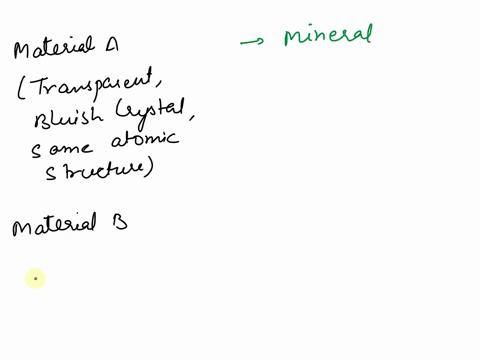 Material A
→ Mineral
(Transparent,
Bluish Crystal,
same atomic
structure)
Material B